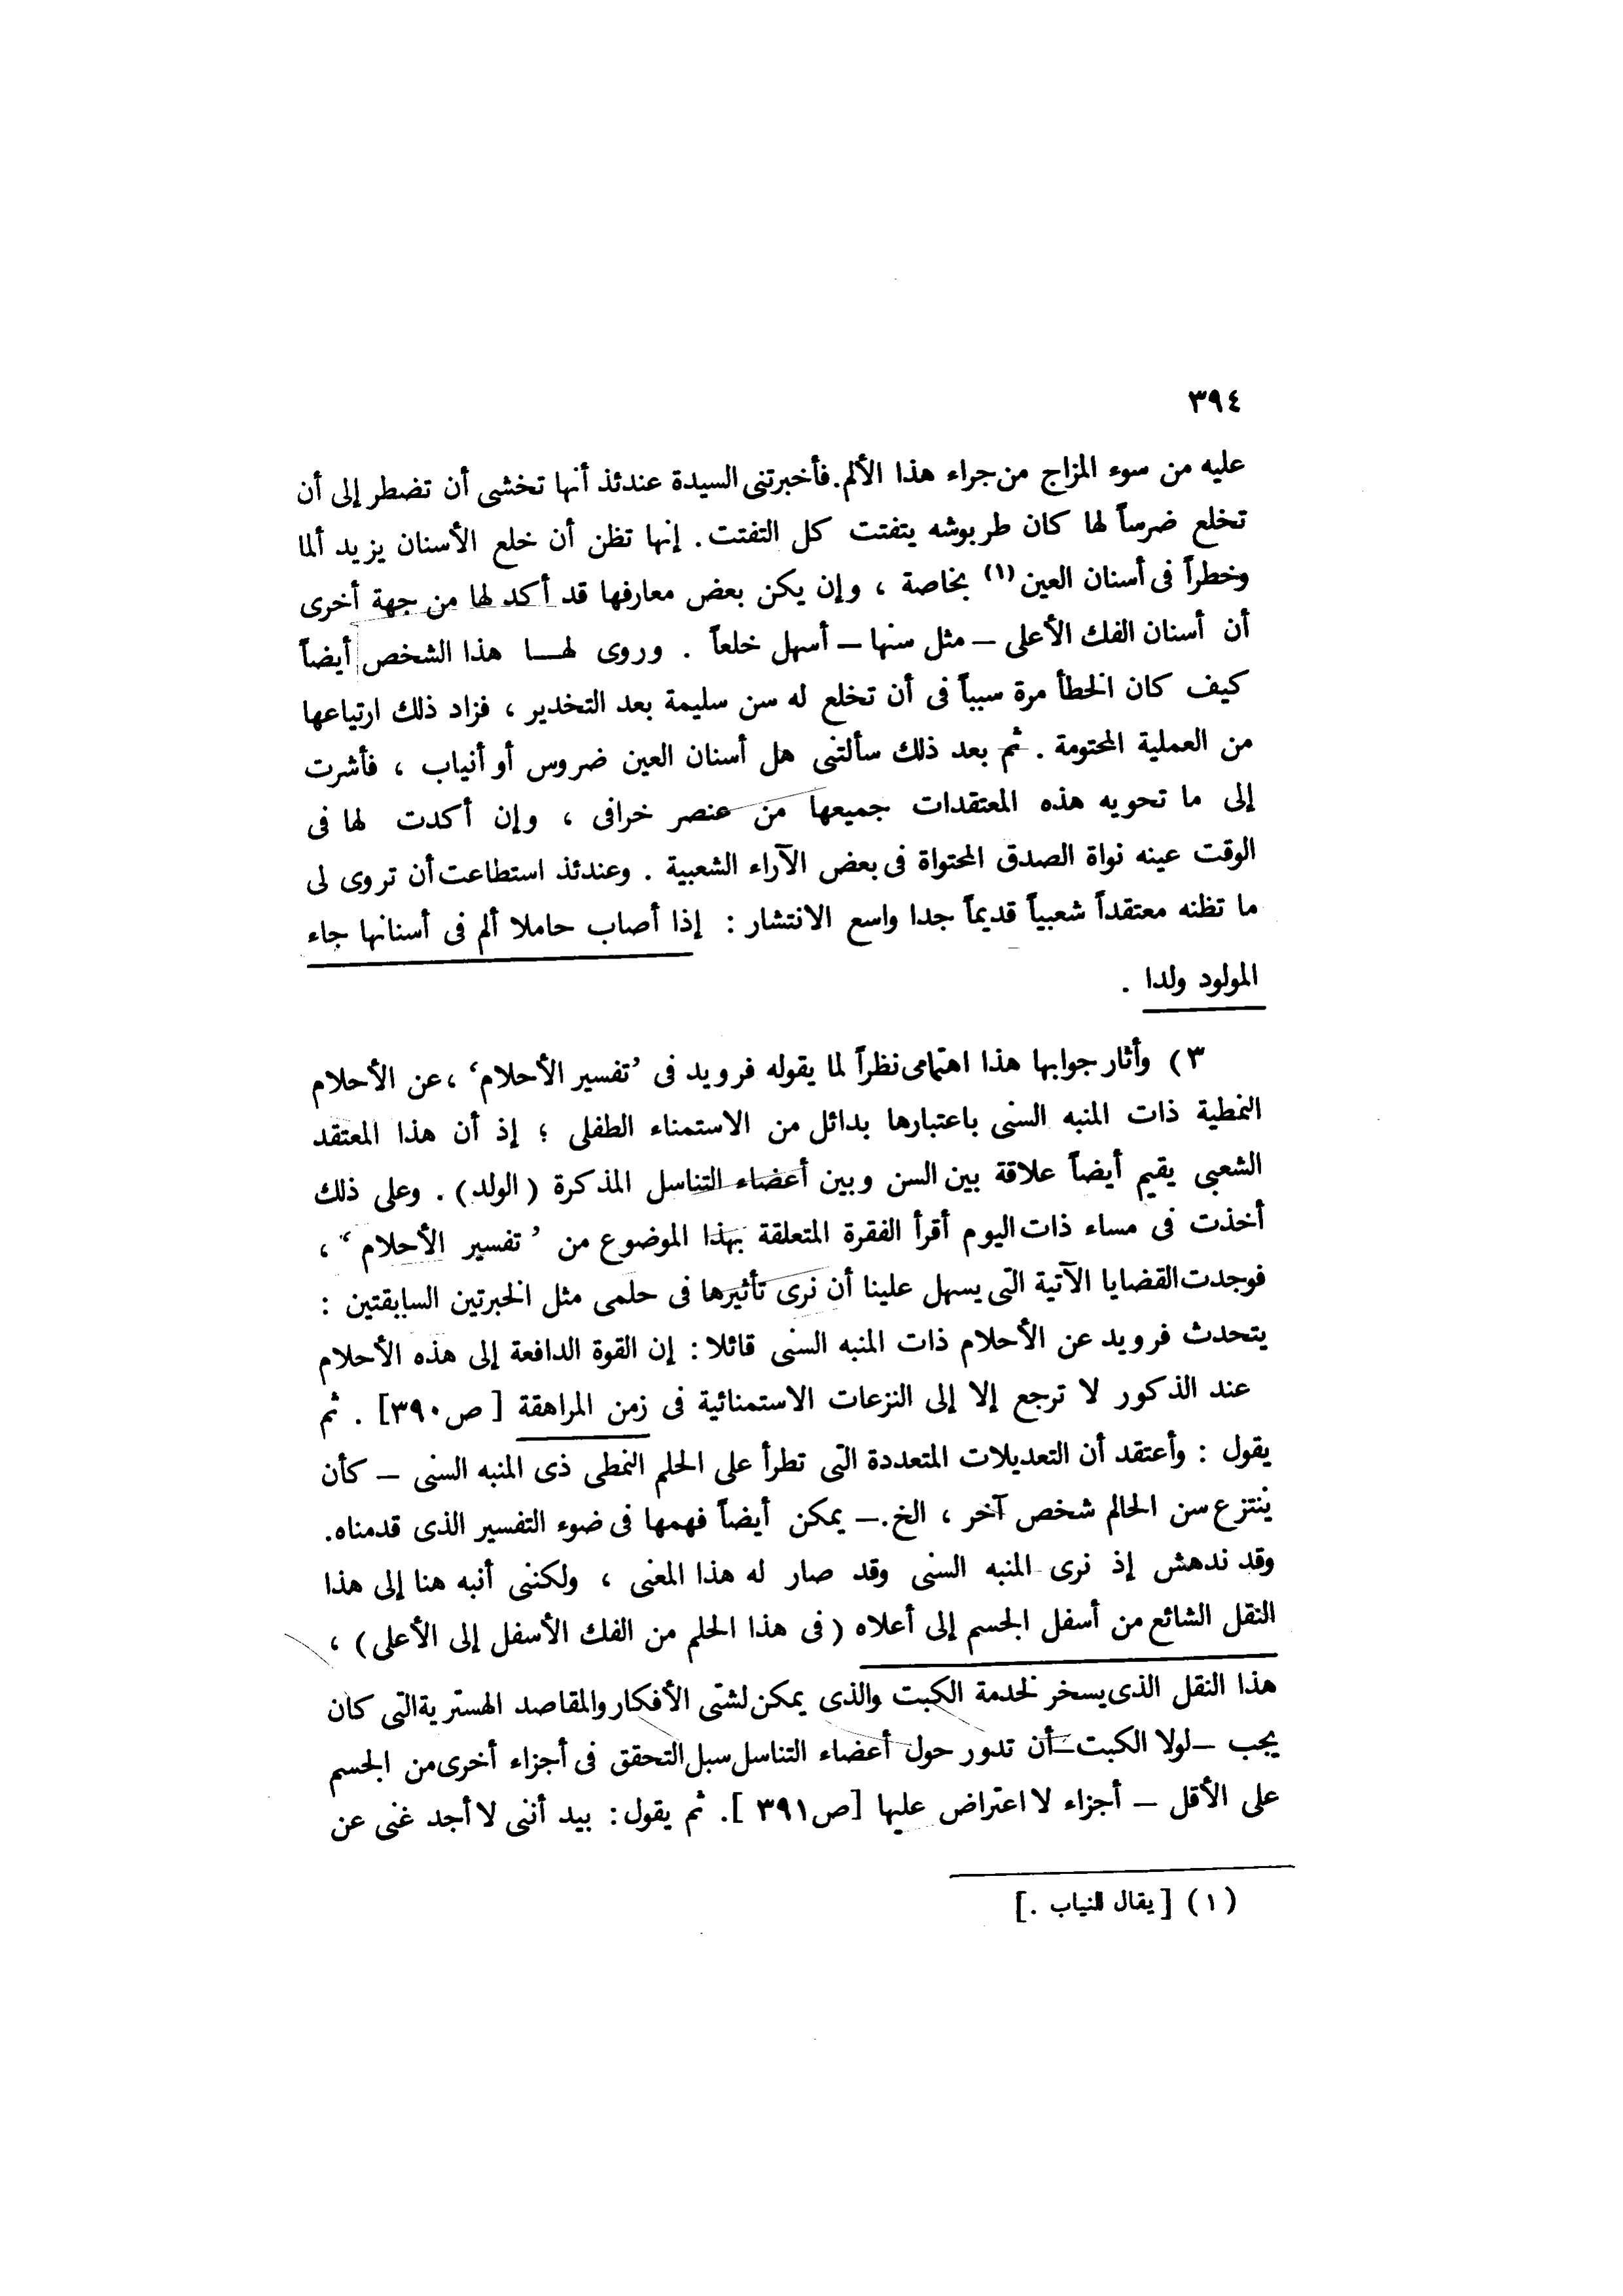 ٣٩٤
عليه من سوء المزاج من جراء هذا الألم. فأخبرتنى السيدة عندئذ أنها تخشى أن تضطر إلى أن
تخلع ضرساً لها كان طربوشه يتفتت كل التفتت. إنها تظن أن خلع الأسنان يزيد ألما
وخطراً فى أسنان العين (١) بخاصة ، وإن يكن بعض معارفها قد أكد لها من جهة أخرى
أن أسنان الفك الأعلى – مثل سنها – أسهل خلعاً . وروى لهـــا هذا الشخص أيضاً
كيف كان الخطأ مرة سبباً فى أن تخلع له سن سليمة بعد التخدير ، فزاد ذلك ارتياعها
من العملية المحتومة . ثم بعد ذلك سألتنى هل أسنان العين ضروس أو أنياب ، فأشرت
إلى ما تحويه هذه المعتقدات جميعها من عنصر خرافى ، وإن أكدت لها فى
الوقت عينه نواة الصدق المحتواة فى بعض الآراء الشعبية . وعندئذ استطاعت أن تروى لى
ما تظنه معتقداً شعبياً قديماً جدا واسع الانتشار : إذا أصاب حاملا ألم فى أسنانها جاء
المولود ولدا .
٣ ) وأثار جوابها هذا اهتمامى نظراً لما يقوله فرويد فى ’تفسير الأحلام‘ ، عن الأحلام
النمطية ذات المنبه السنى باعتبارها بدائل من الاستمناء الطفلى ؛ إذ أن هذا المعتقد
الشعبى يقيم أيضاً علاقة بين السن وبين أعضاء التناسل المذكرة ( الولد ) . وعلى ذلك
أخذت فى مساء ذات اليوم أقرأ الفقرة المتعلقة بهذا الموضوع من ’ تفسير الأحلام ‘ ،
فوجدت القضايا الآتية التى يسهل علينا أن نرى تأثيرها فى حلمى مثل الخبرتين السابقتين :
يتحدث فرويد عن الأحلام ذات المنبه السنى قائلا : إن القوة الدافعة إلى هذه الأحلام
عند الذكور لا ترجع إلا إلى النزعات الاستمنائية فى زمن المراهقة [ ص ٣٩٠] . ثم
يقول : وأعتقد أن التعديلات المتعددة التى تطرأ على الحلم النمطى ذى المنبه السنى – كأن
ينتزع سن الحالم شخص آخر ، الخ. – يمكن أيضاً فهمها فى ضوء التفسير الذى قدمناه.
وقد ندهش إذ نرى المنبه السنى وقد صار له هذا المعنى ، ولكننى أنبه هنا إلى هذا
النقل الشائع من أسفل الجسم إلى أعلاه ( فى هذا الحلم من الفك الأسفل إلى الأعلى ) ،
هذا النقل الذى يسخر لخدمة الكبت والذى يمكن لشتى الأفكار والمقاصد الهسترية التى كان
يجب – لولا الكبت – أن تدور حول أعضاء التناسل سبل التحقق فى أجزاء أخرى من الجسم
على الأقل – أجزاء لا اعتراض عليها [ ص ٣٩١ ]. ثم يقول : بيد أننى لا أجد غنى عن
( ١ ) [ يقال للنياب . ]